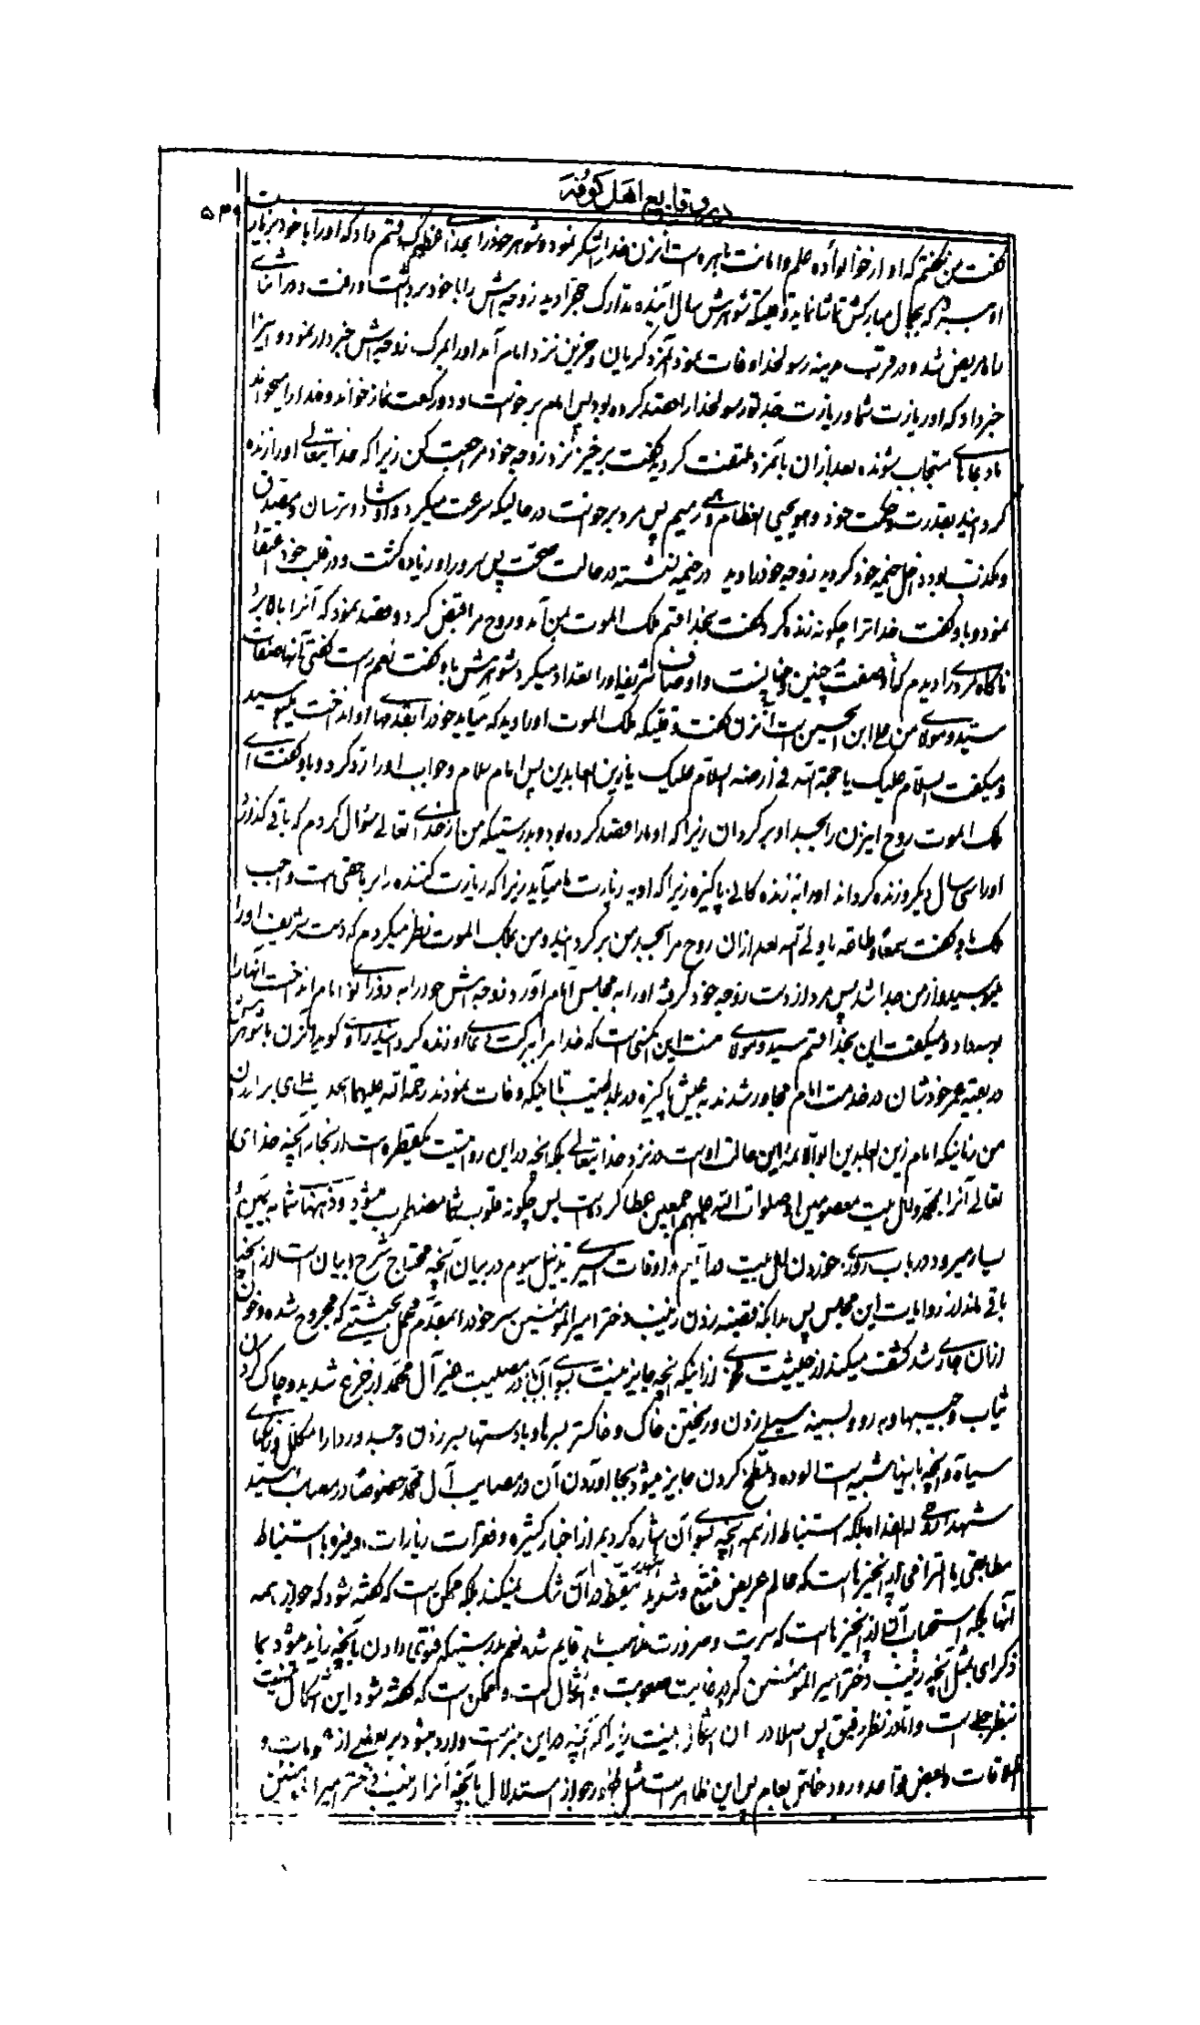 در وقایع اهل کوفه
۵۴۹
گفت من نگفتم که او از خوانواده علم و امانت باهره است آنزن خدا را شکر نمود و شوهر خود را بخدای عظیم قسم داد که او را با خود بزیارت
او ببرد که بجمال مبارکش تماشا نماید وقتیکه شوهرش سال آینده تدارک حج را دید زوجه اش را با خود برداشت و رفت در اثنای
راه مریض شد و در قرب مدینه رسولخدا وفات نمود آنمرد گریان و حزین نزد امام آمد او را بمرگ زوجه اش خبردار نمود و نیز
خبر داد که او زیارت شما و زیارت جد تو رسولخدا را قصد کرده بود پس امام برخواست و دو رکعت نماز خواند و خدا را میخواند
با دعاهای مستجاب شونده بعد از آن بآنمرد ملتفت گردید گفت برخیز نزد زوجه خود مراجعت کن زیرا که خدایتعالی او را زنده
گردانید بقدرت و حکمت خود و هو یحیی العظام و هی رمیم پس مرد برخواست در حالیکه سرعت میکرد و او شاد و ترسان و مصدق
و مکذب بود داخل خیمه خود گردید زوجه خود را دید در خیمه نشسته در حالت صحت پس سرور او زیاده گشت و در قلب خود اعتقاد
نمود و باو گفت خدا ترا چگونه زنده کرد گفت بخدا قسم ملک الموت بمن آمد و روح مرا قبض کرد و قصد نمود که آنرا بالا برد
ناگاه مردی را دیدم که صفتش چنین و چنانست و اوصاف شریفه او را تعداد میکرد و شوهرش باو گفت نعم راست گفتی آنها صفات
سید و مولای من علی ابن الحسین است آنزن گفت وقتیکه ملک الموت او را دید که میآید خود را بقدمهای او انداخت میبوسید
و میگفت السلام علیک یا حجة الله فی ارضه السلام علیک یا زین العابدین پس امام سلام و جواب او را رد کرد و باو گفت ای
ملک الموت روح این زن را بجسد او برگردان زیرا که او ما را قصد کرده بود و بدرستیکه من از خدای تعالی سؤال کردم که باقی گذارد
او را سی سال دیگر و زنده گرداند او را بزنده گانی پاکیزه زیرا که او به زیارت ما میآید زیرا که زیارت کننده را بر ما حقی است واجب
ملک باو گفت سمعا و طاعة یا ولی الله بعد از آن روح مرا بجسد من برگردانید و من بملک الموت نظر میکردم که دست شریف او را
میبوسید و از من جدا شد پس مرد از دست زوجه خود گرفته او را به مجلس امام آورد زوجه اش خود را به دو زانوی امام انداخت آنها را
بوسه داد و میگفت این بخدا قسم سید و مولای منست این کسی است که خدا مرا به برکت دعای او زنده گردانید راوی گوید آنزن با شوهرش
در بقیه عمر خودشان در خدمت امام مجاور شدند به عیش پاکیزه در بلد طیب تا اینکه وفات نمودند رحمة الله علیهما ای برادران
من زمانیکه امام زین العابدین ابو الائمه این حالت اوست در نزد خدایتعالی بلکه آنچه در این روایت یکقطره است از بحار آنچه خدای
تعالی آنرا بمحمد و اهل بیت معصومین او صلوات الله علیهم اجمعین عطا کرده است پس چگونه قلوب شما مضطرب میشود و ذهنها شما به یمین و
یسار میرود در باب روزی خوردن اهل بیت در ایام و اوقات اسیری تذییل سیوم در بیان آنچه محتاج شرح و بیان است از آنچه
باقی ماند از روایات این مجلس پس بدانکه قضیه زدن زینب دختر امیرالمؤمنین سر خود را بمقدم محمل بحیثیتی که مجروح شده و خون
از آن جاری شد کشف میکند از حیثیت از اینکه آنچه جایز نیست سوای آن در مصیبت غیر آل محمد از جزع شدید و چاک کردن
ثیاب و جیبها و به رو و بسینه سیلی زدن و ریختن خاک و خاکستر بسرها و با دستها بسر زدن و جسد و ردا را
سیاه و آنچه باینها شبیه است الوده و ملطخ کردن جایز میشود بجا آوردن آن در مصایب آل محمد خصوصا در مصائب سید
شهدا روحی له الفداه بلکه استنباط از همه آنچه بسوی آن اشاره کردیم از اخبار کثیره و فقرات زیارات و غیره با استنباط
مطابقی یا التزامی از آنچیزهاست که عالم عریض متتبع و شدید التدرب در آن شک نمیکند بلکه ممکن است که گفته شود که جواز همه
آنها بلکه استحباب آن از آنچیزهاست که سیرت و ضرورت مذهب بر آن قایم شده نعم بدرستیکه فتوی دادن بآنچه زیاد میشود بنا
ذکرای بمثل آنچه زینب دختر امیرالمؤمنین کرد در غایت صعوبت و اشکال است و ممکن است که گفته شود این اشکال
بنظر جلی است و اما در نظر دقیق پس اصلا در آن اشکال نیست زیرا که آنچه در این خبر است وارد میشود بر بعضی از عمومات و
اطلاقات و بعض قواعد ورود خاص بعام پس این ظاهر است مثل در جواز استدلال بآنچه آنرا زینب دختر امیرالمؤمنین